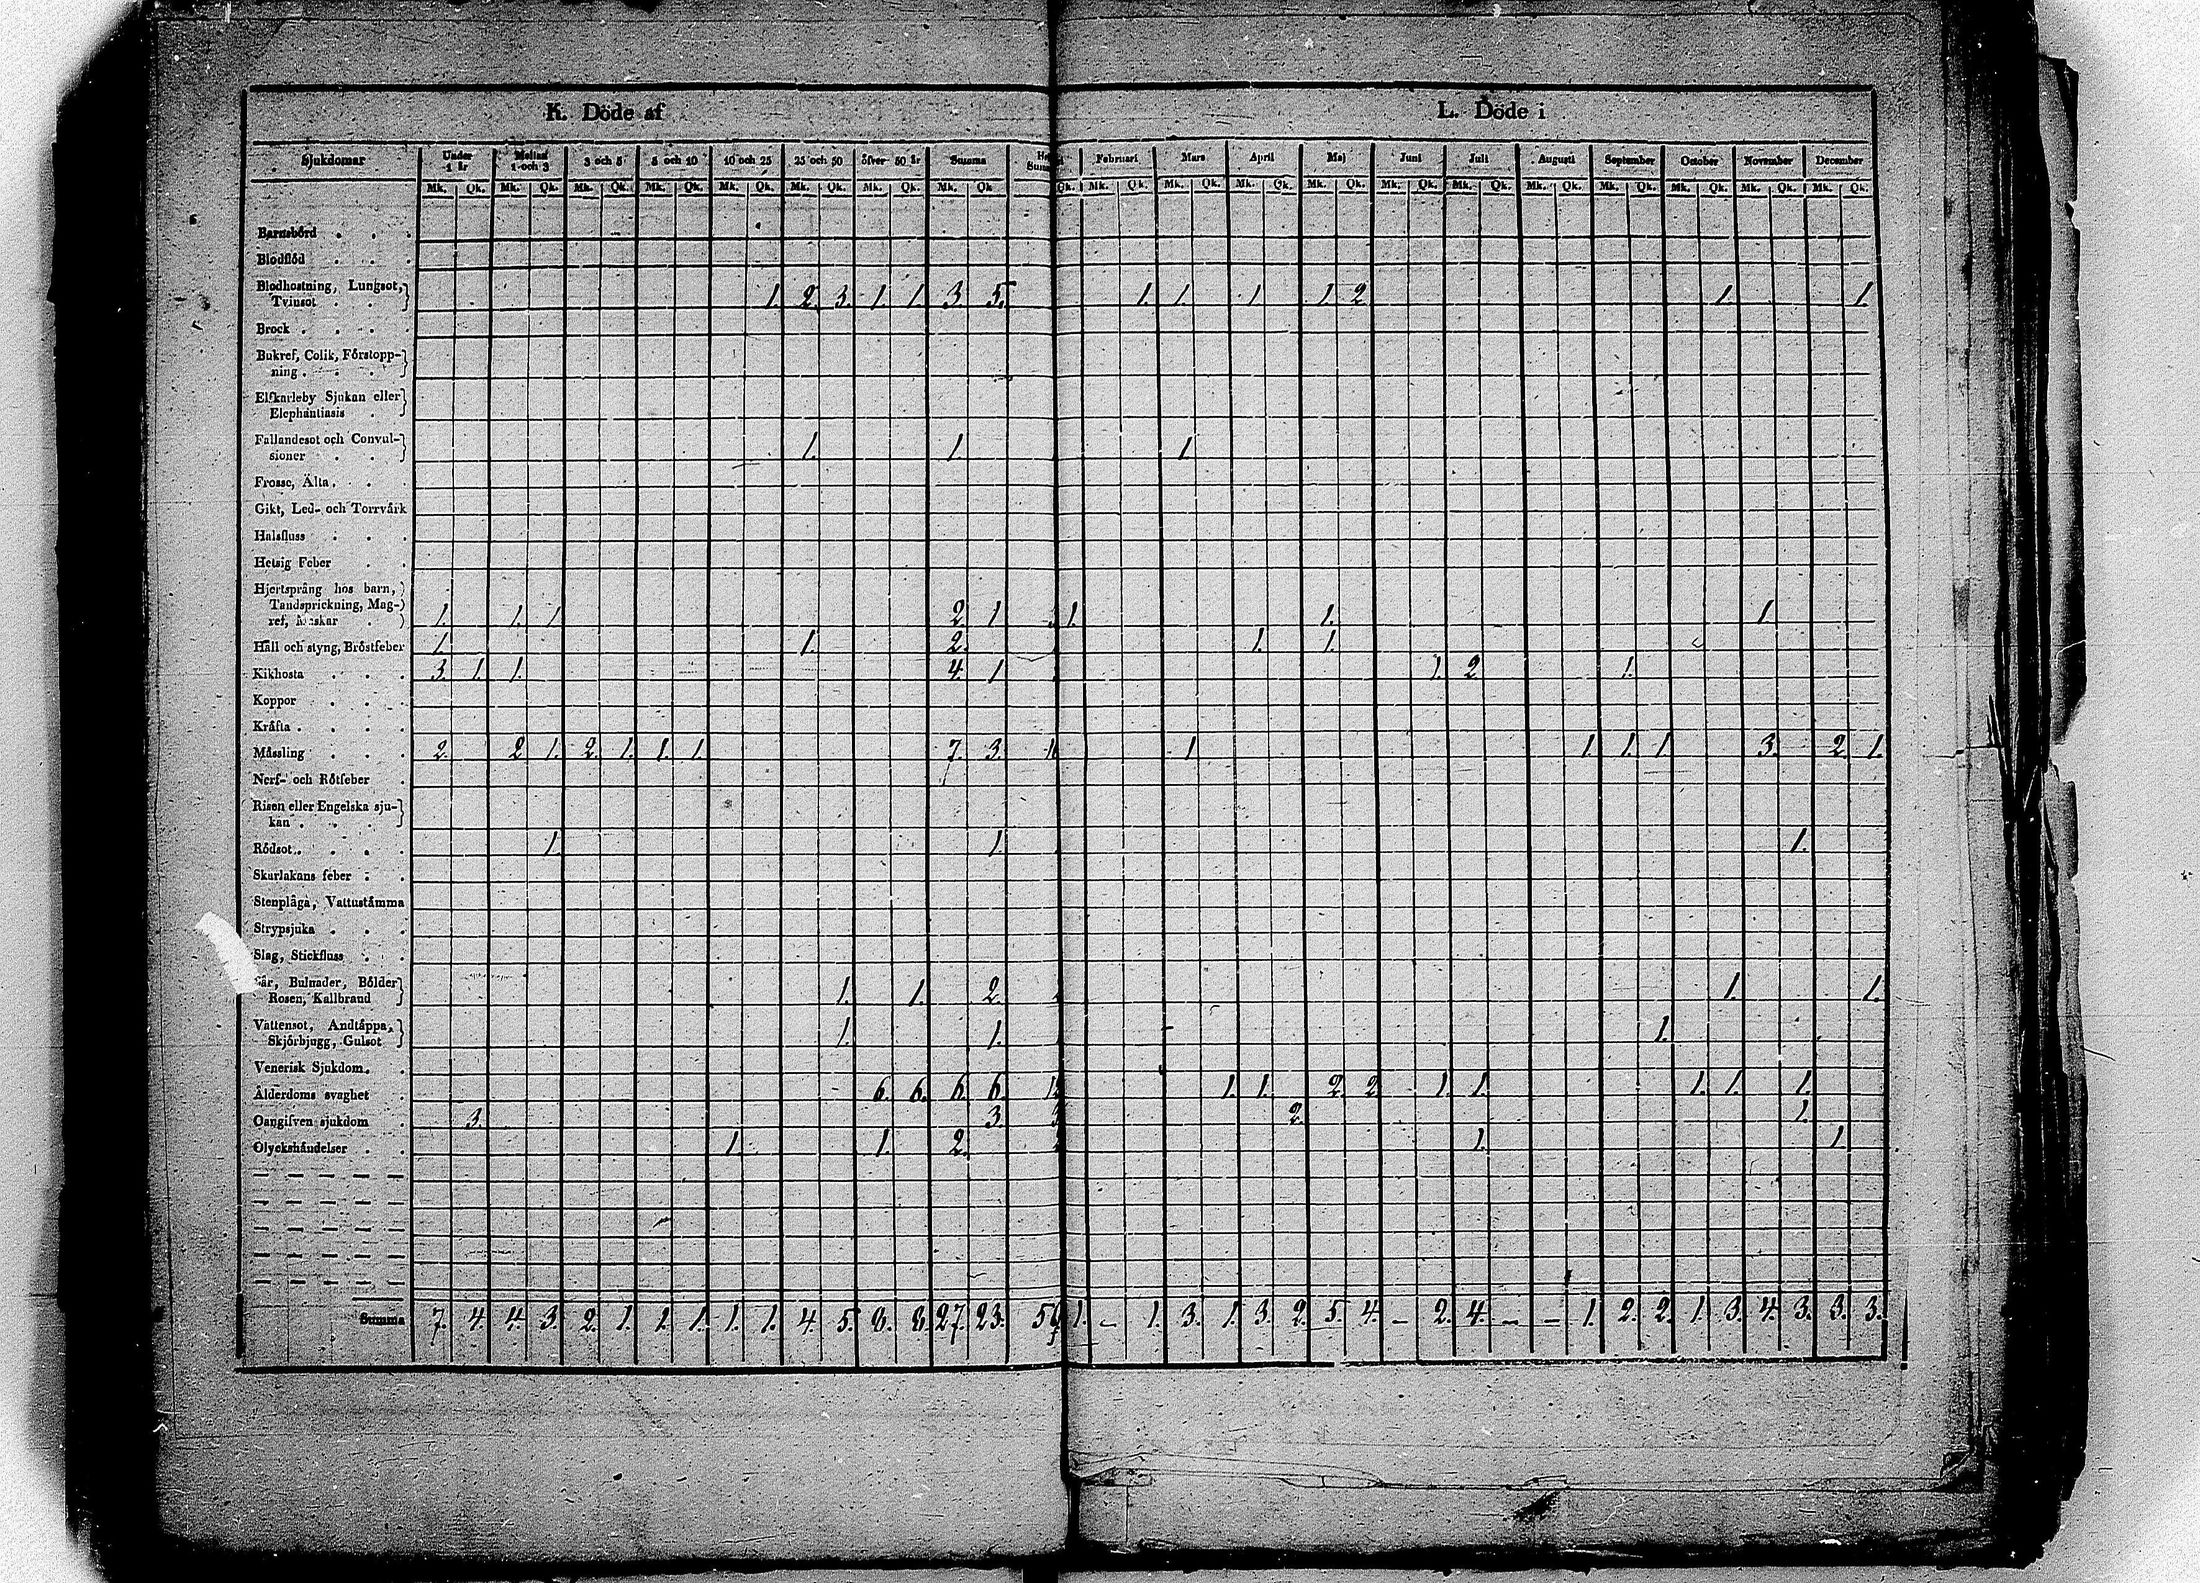 K. Döde af L. Döde i
Sjukdomar Under 1 år Mellan 1 och 3 3 och 5 5 och 10 10 och 25 25 och 50 öfver 50 år Summa Februari Mars April Maj Juni Juli Augusti September October November December
Mk. Qk. Mk. Qk. Mk. Qk. Mk. Qk. Mk. Qk. Mk. Qk. Mk. Qk. Mk. Qk Qk. Mk. Qk. Mk. Qk. Mk. Qk. Mk. Qk. Mk. Qk. Mk. Qk. Mk. Qk. Mk. Qk. Mk. Qk. Mk. Qk. Mk. Qk.
Barnsbörd . . .
Blodflöd . . .
Blodhostning, Lungsot,
Tvinsot . . 1. 2. 3. 1. 1. 3. 5. 1. 1. 1. 1. 2. 1. 1.
Brock . . . .
Bukref, Colik, Förstopp-
ning . . .
Elfkarleby Sjukan eller
Elephantiasis .
Fallandesot och Convul-
sioner . . 1. 1 1.
Frosse, Älta . . .
Gikt, Led- och Torrvärk
Halsfluss . . .
Hetsig Feber . .
Hjertsprång hos barn,
Tandsprickning, Mag-
ref, Maskar . 1. 1. 1 2. 1 1. 1. 1
Håll och styng, Bröstfeber 1. 1. 2. 1. 1.
Kikhosta . . . 3. 1. 1. 4. 1 1. 2 1.
Koppor . . .
Kräfta . . . .
Mässling . . . 2. 2 1. 2. 1. 1. 1. 7. 3. 1 1. 1. 1 3. 2. 1.
Nerf- och Rötfeber .
Risen eller Engelska sju-
kan . . .
Rödsot . . . . 1. 1. 1.
Skarlakans feber . .
Stenplåga, Vattustämma
Strypsjuka . . .
Slag, Stickfluss . .
Sår, Bulnader, Bölder
Rosen, Kallbrand 1. 1. 2. 1. 1.
Vattensot, Andtäppa,
Skjörbjugg, Gulsot 1. 1. 1.
Venerisk Sjukdom . .
Ålderdoms svaghet . 6. 6. 6. 6. 12 1. 1. 2. 2. 1. 1. 1. 1. 1.
Oangifven sjukdom . 3. 3. 3 2. 1.
Olyckshändelser . . 1. 1. 2. 1. 1.
Summa 7. 4. 4. 3. 2. 1. 1. 1. 1. 1. 4. 5. 8. 8. 27. 23. 50 1. - 1. 3. 1. 3. 2. 5. 4. - 2. 4. - - 1. 2. 2. 1. 3. 4. 3. 3. 3.